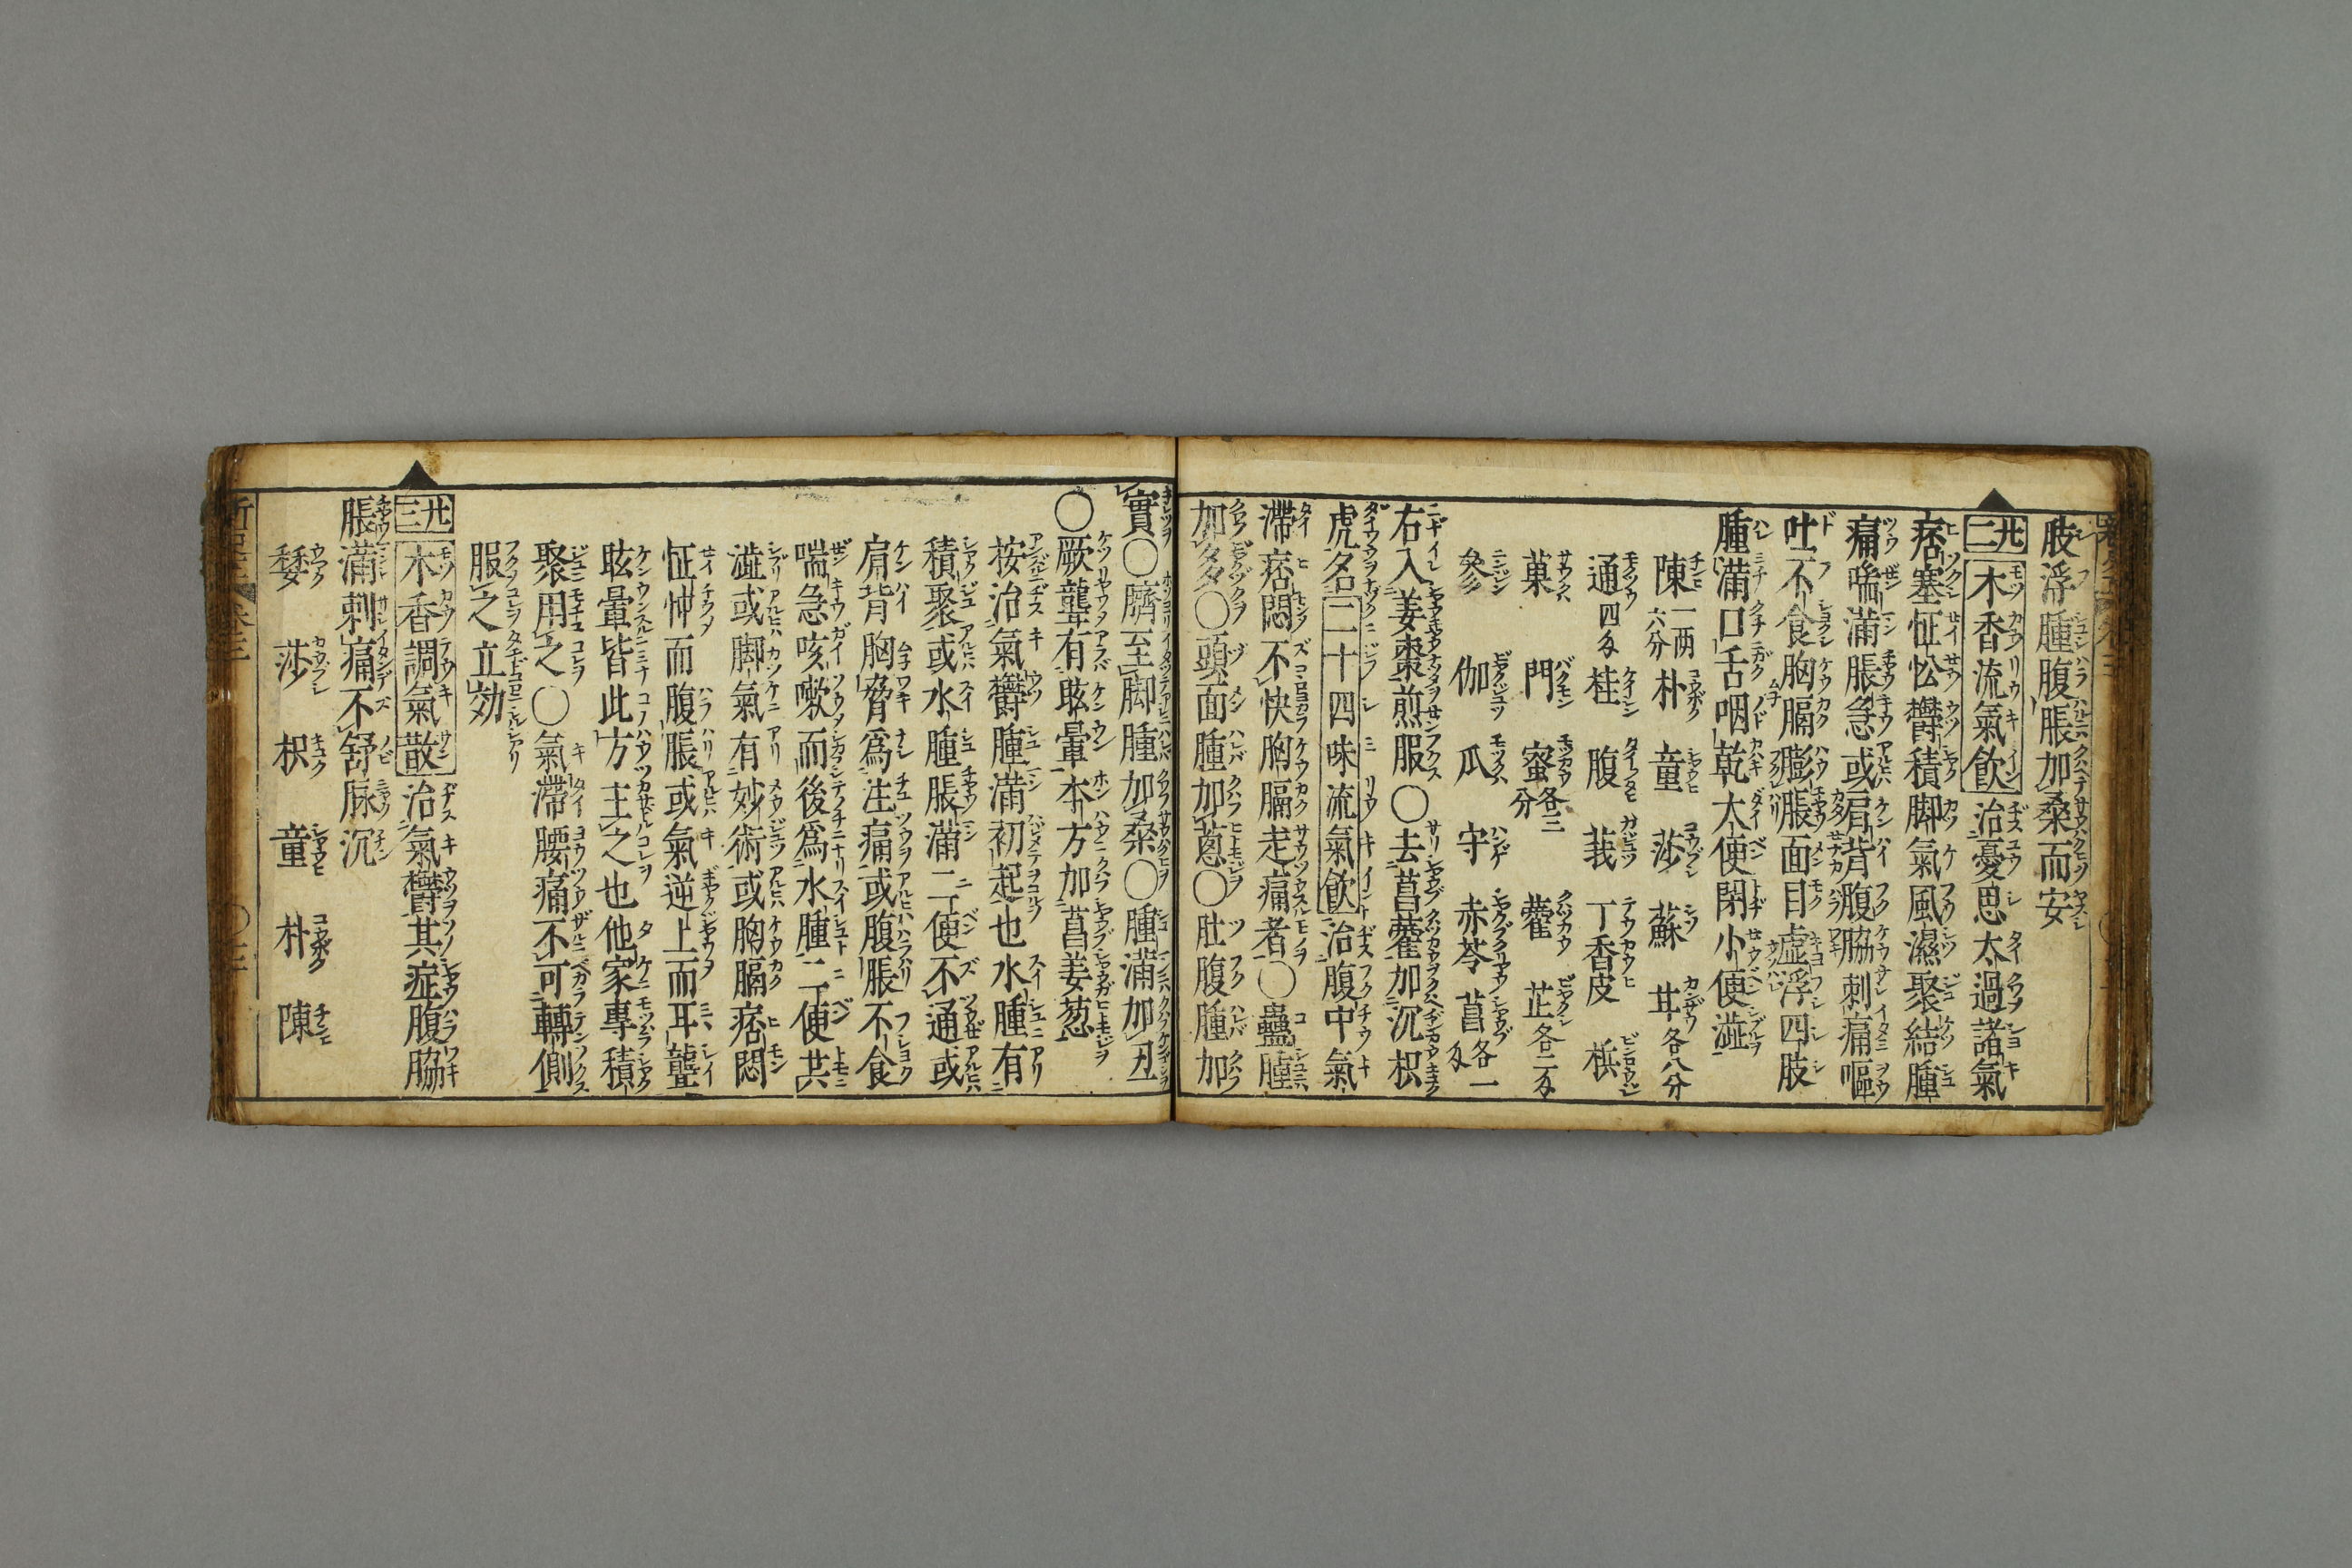 肢浮腫腹脹加桑而安
廿二 木香流氣飲 治憂思太過諸氣
痞塞怔忪欝積脚氣風濕聚結腫
痛喘滿脹急或肩背腹脇刺痛嘔
吐不食胸膈膨脹面目虚浮四肢
腫滿口舌咽乾大便閉小便澁
陳一两六分 朴 童 莎 蘇 甘各八分
通四匁 桂 腹 莪 丁香皮 梹
菓 門 蜜各三分 藿 芷各二匁
參 伽 瓜 守 赤苓 菖各一匁
右入姜棗煎服〇去菖藿加沉枳
虎名二十四味流氣飲治腹中氣
滯痞悶不快胸膈走痛者〇蠱腫
加夕〇頭面腫加葱〇肚腹腫加
實〇臍至脚腫加桒〇腫滿加丑
〇厥聾有眩暈本方加菖姜葱
按治氣欝腫滿初起也水腫有
積聚或水腫脹滿二便不通或
肩背胸脅爲注痛或腹脹不食
喘急咳嗽而後爲水腫二便共
澁或脚氣有妙術或胸膈痞悶
怔忡而腹脹或氣逆上而耳聾
眩暈皆此方主之也他家專積
聚用之〇氣滯腰痛不可轉側
服之立効
廿三 木香調氣散 治氣欝其症腹脇
脹滿刺痛不舒脉沉
莎 枳 童 朴 陳